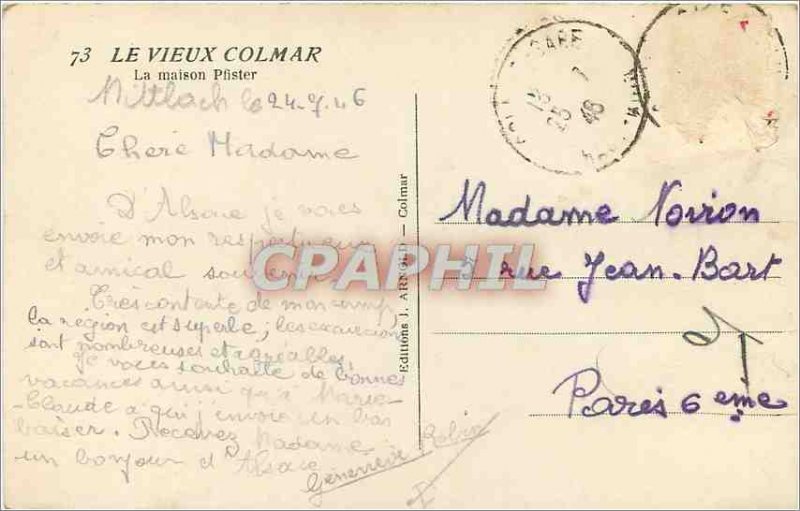 73 LE VIEUX COLMAR
La maison Pfister
Mittlach le 24.7.46
Chère Madame
D'Alsace je vous
envoie mon respectueux
et amical souvenir
Très contente de mon camp,
la région est superbe, les excursions
sont nombreuses et agréables.
Je vous souhaite de bonnes
vacances ainsi qu'à Marie-
Claude à qui j'envoie un bon
baiser. Recevez Madame
un bonjour d'Alsace
Geneviève
Editions J. ARNOLD — Colmar
GARE
18
25 7
46
Madame Noirion
3 rue Jean-Bart
Paris 6 eme
CPAPHIL